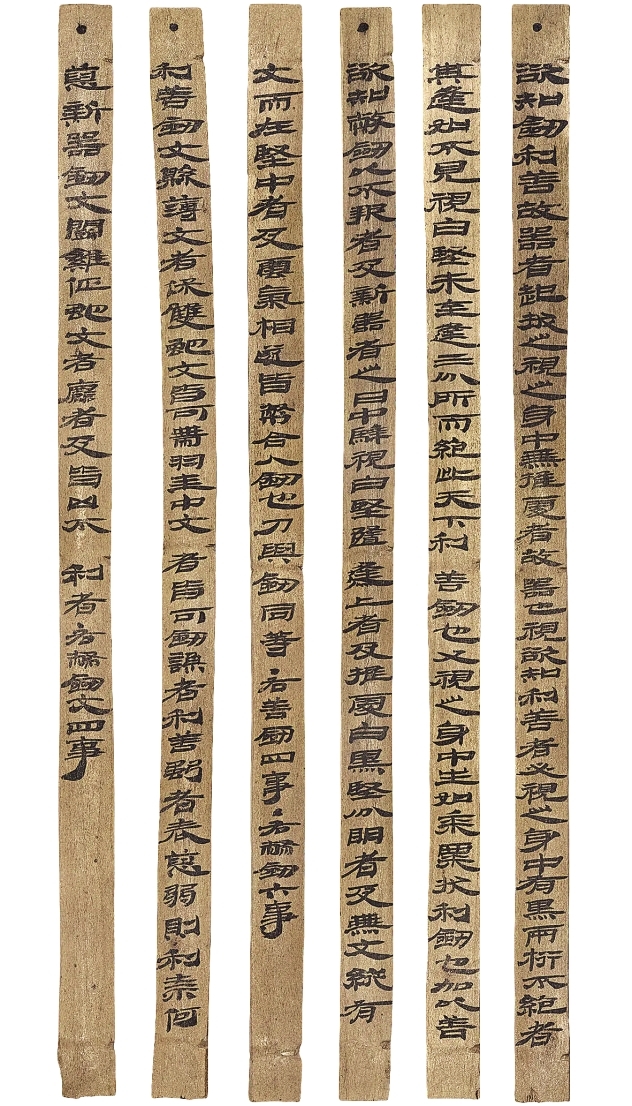 欲知劍利善故器者起拔之視之身中無推處者故器也視欲知利善者必視之身中有黑兩桁不絕者
其逢如不見視白堅未至逢三分所而絕此天下利善劍也又視之身中生如黍粟狀利劍也加以善
欲知幣劍以不報者及新器者之日中騂視白堅隨逢上者及推處白黑堅分明者及無文縱有
文而在堅中者及雲氣相遂皆幣合人劍也刀與劍同等·右善劍四事·右幣劍六事
利善劍文縣薄文者保雙蛇文皆可帶羽圭中文者皆可劍謙者利善強者表恚弱則利奈何
恚新器劍文鬥雞佂蛇文者麤者及皆凶不利者·右幣劍文四事